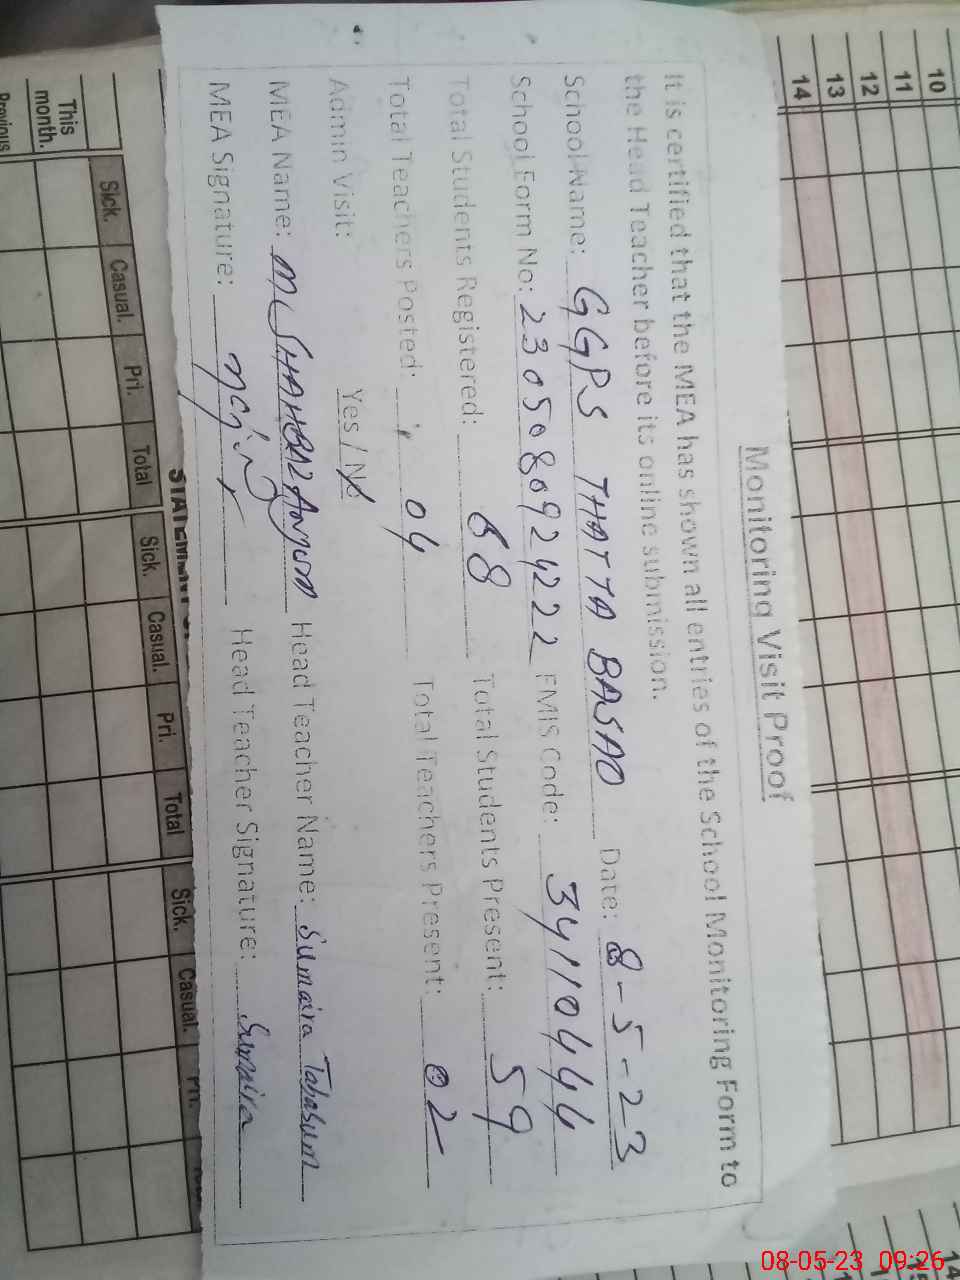 Monitoring Visit Proof
It is certified that the MEA has shown all entries of the School Monitoring Form to
the Head Teacher before its online submission.
School Name: GGPS THATTA BASAO Date: 8-5-23
School Form No: 2305080924222 EMIS Code: 34110444
Total Students Registered: 68 Total Students Present: 59
Total Teachers Posted: 04 Total Teachers Present: 02
Admin Visit: Yes / No
MEA Name: Head Teacher Name: Sumaira Tabasum
MEA Signature: Head Teacher Signature: Sumaira
10
11
12
13
14
Sick. Casual. Pri. Total Sick. Casual. Pri. Total Sick. Casual. Pri.
This month.
Previous
08-05-23 09:26